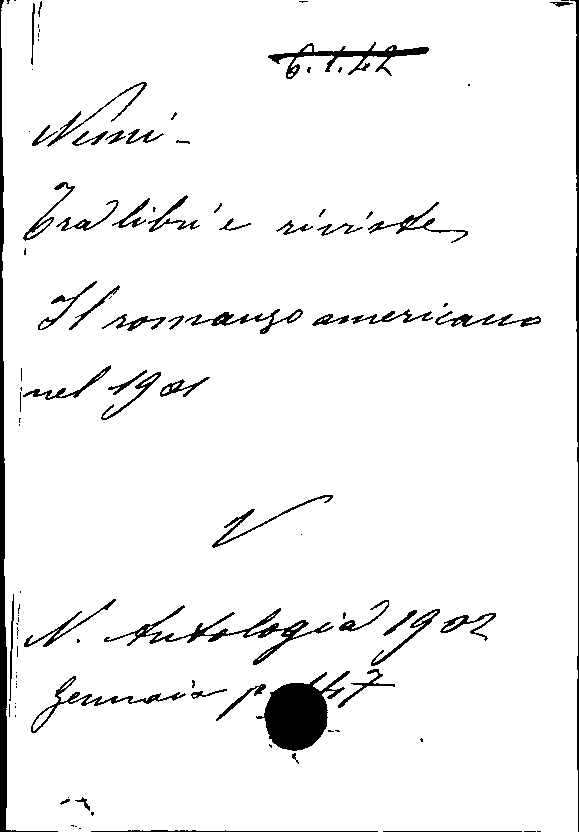 6.1.42
Nemi -
Tra libri e riviste
Il romanzo americano
nel 1901
V
N. Antologia 1902
Gennaio p. 147